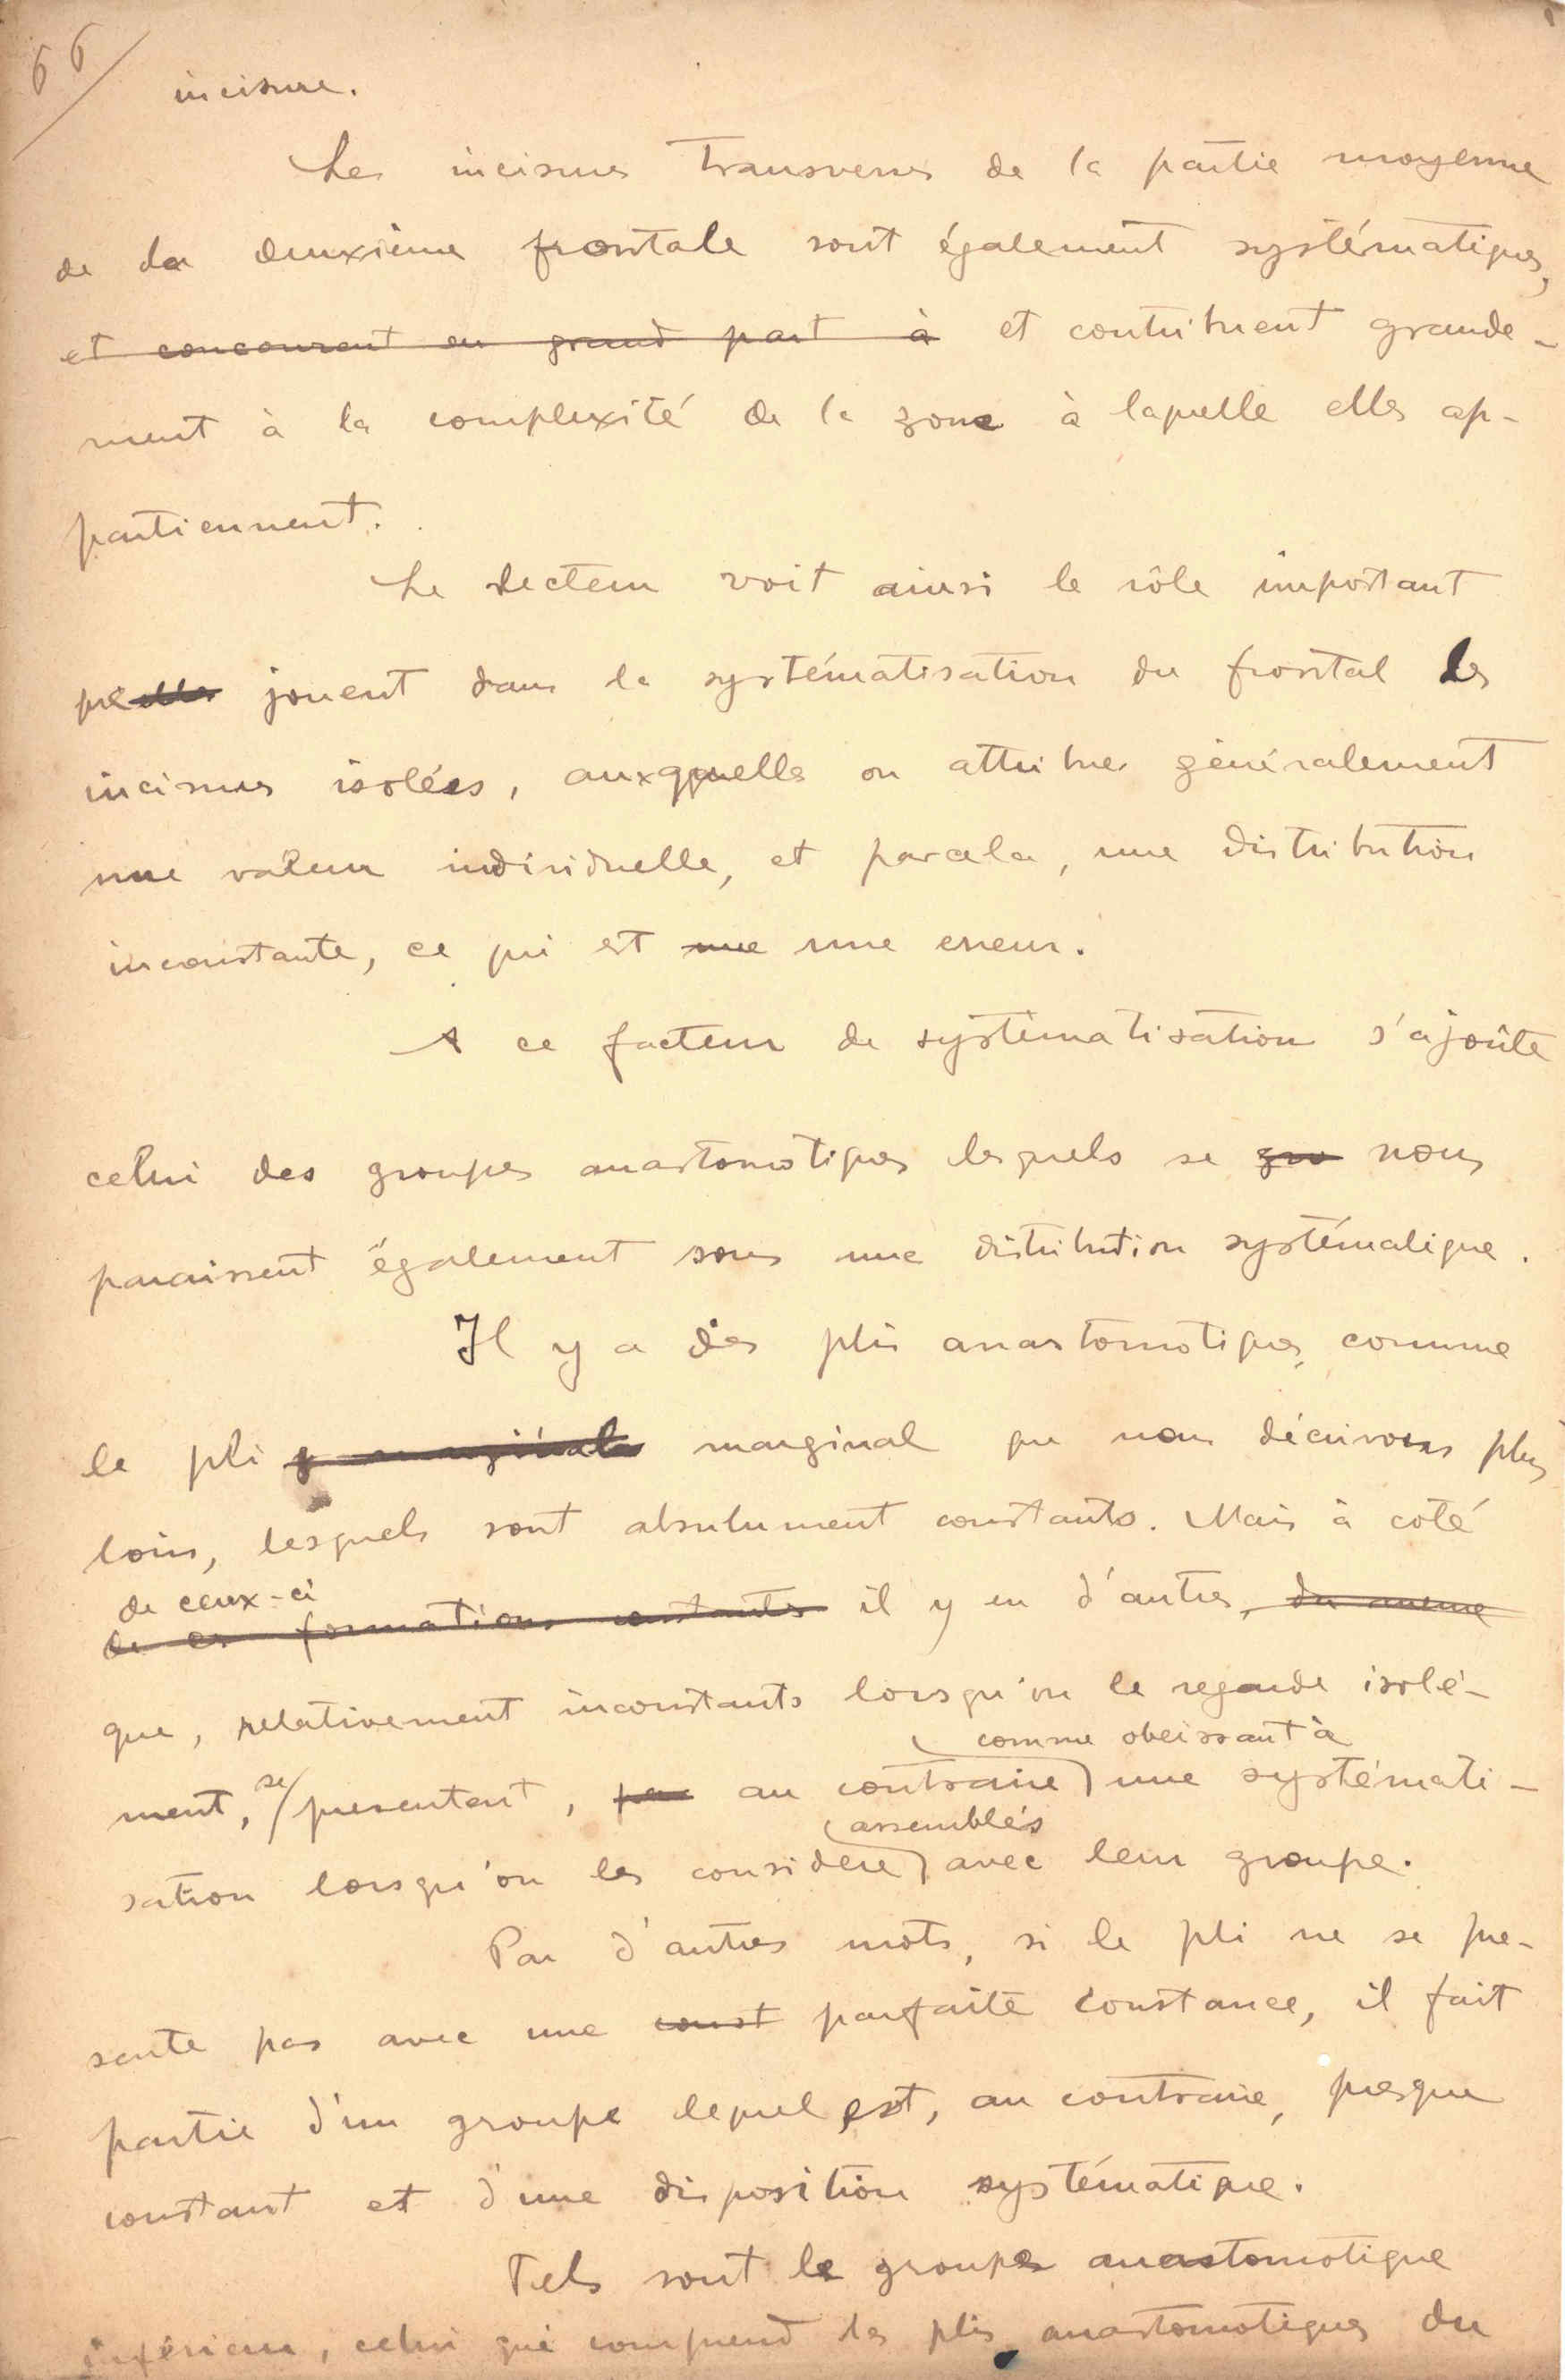 66
incisure.
Les incisures transverses de la partie moyenne
de la deuxième frontale sont également systématiques,
et concourent en grand part à et contribuent grande-
ment à la complexité de la zone à laquelle elles ap-
partiennent.
Le lecteur voit ainsi le rôle important
que elles jouent dans la systématisation du frontal les
incisures isolées, auxquelles on attribue généralement
une valeur individuelle, et par cela, une distribution
inconstante, ce qui est une une erreur.
A ce facteur de systématisation s'ajoûte
celui des groupes anastomotiques lesquels se gro nous
paraissent également sous une distribution systématique.
Il y a des plis anastomotiques, comme
le pli marginal que nous décrivons plus
loin, lesquels sont absulument constants. Mais à coté
de ceux-ci
de ces formations constantes il y en d'autres, du meme
que, relativement inconstants lorsqu'on le regarde isolé-
comme obeissant à
ment, se presentent, par au contraire une systémati-
assemblés
sation lorsqu'on les considere avec leur groupe.
Par d'autres mots, si le pli ne se pre-
sente pas avec une const parfaite constance, il fait
partie d'un groupe lequel est, au contraire, presque
constant et d'une disposition systématique.
Tels sont le groupe anastomotique
inférieur, celui qui comprend les plis anastomotiques du